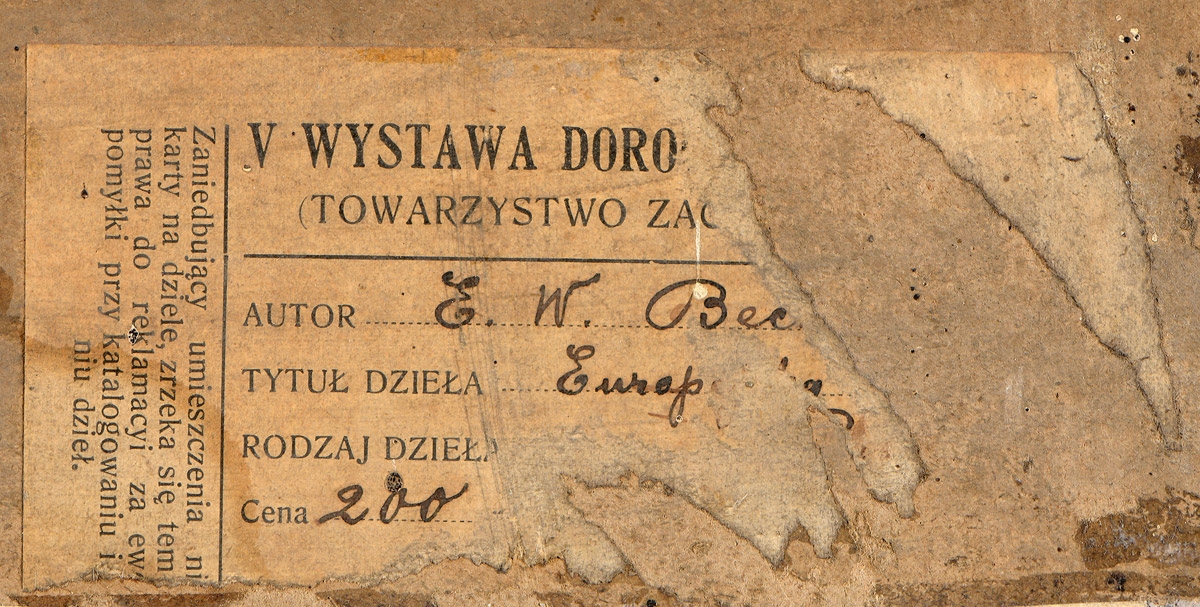 V WYSTAWA DORO
(TOWARZYSTWO ZAC
AUTOR E. W. Bec
TYTUŁ DZIEŁA
RODZAJ DZIEŁA
Cena 200
Zaniedbujący umieszczenia ni
karty na dziele, zrzeka się tem
prawa do reklamacyi za ew
pomyłki przy katalogowaniu i
niu dzieł.